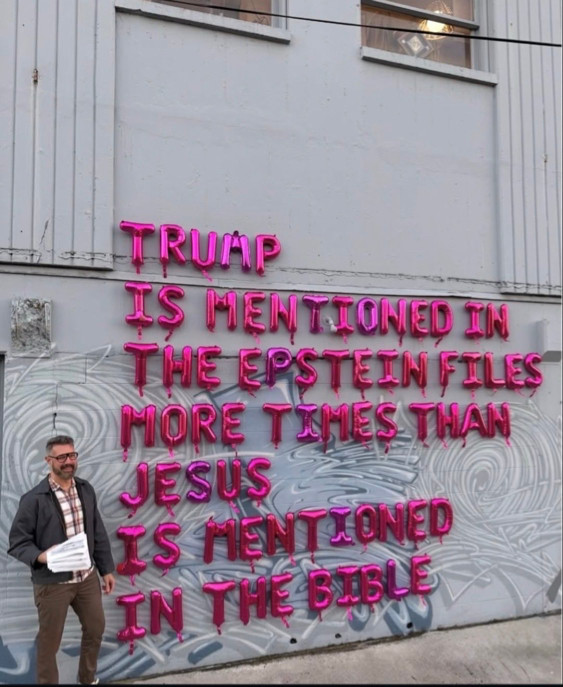 TRUMP
IS MENTIONED IN
THE EPSTEIN FILES
MORE TIMES THAN
JESUS
IS MENTIONED
IN THE BIBLE